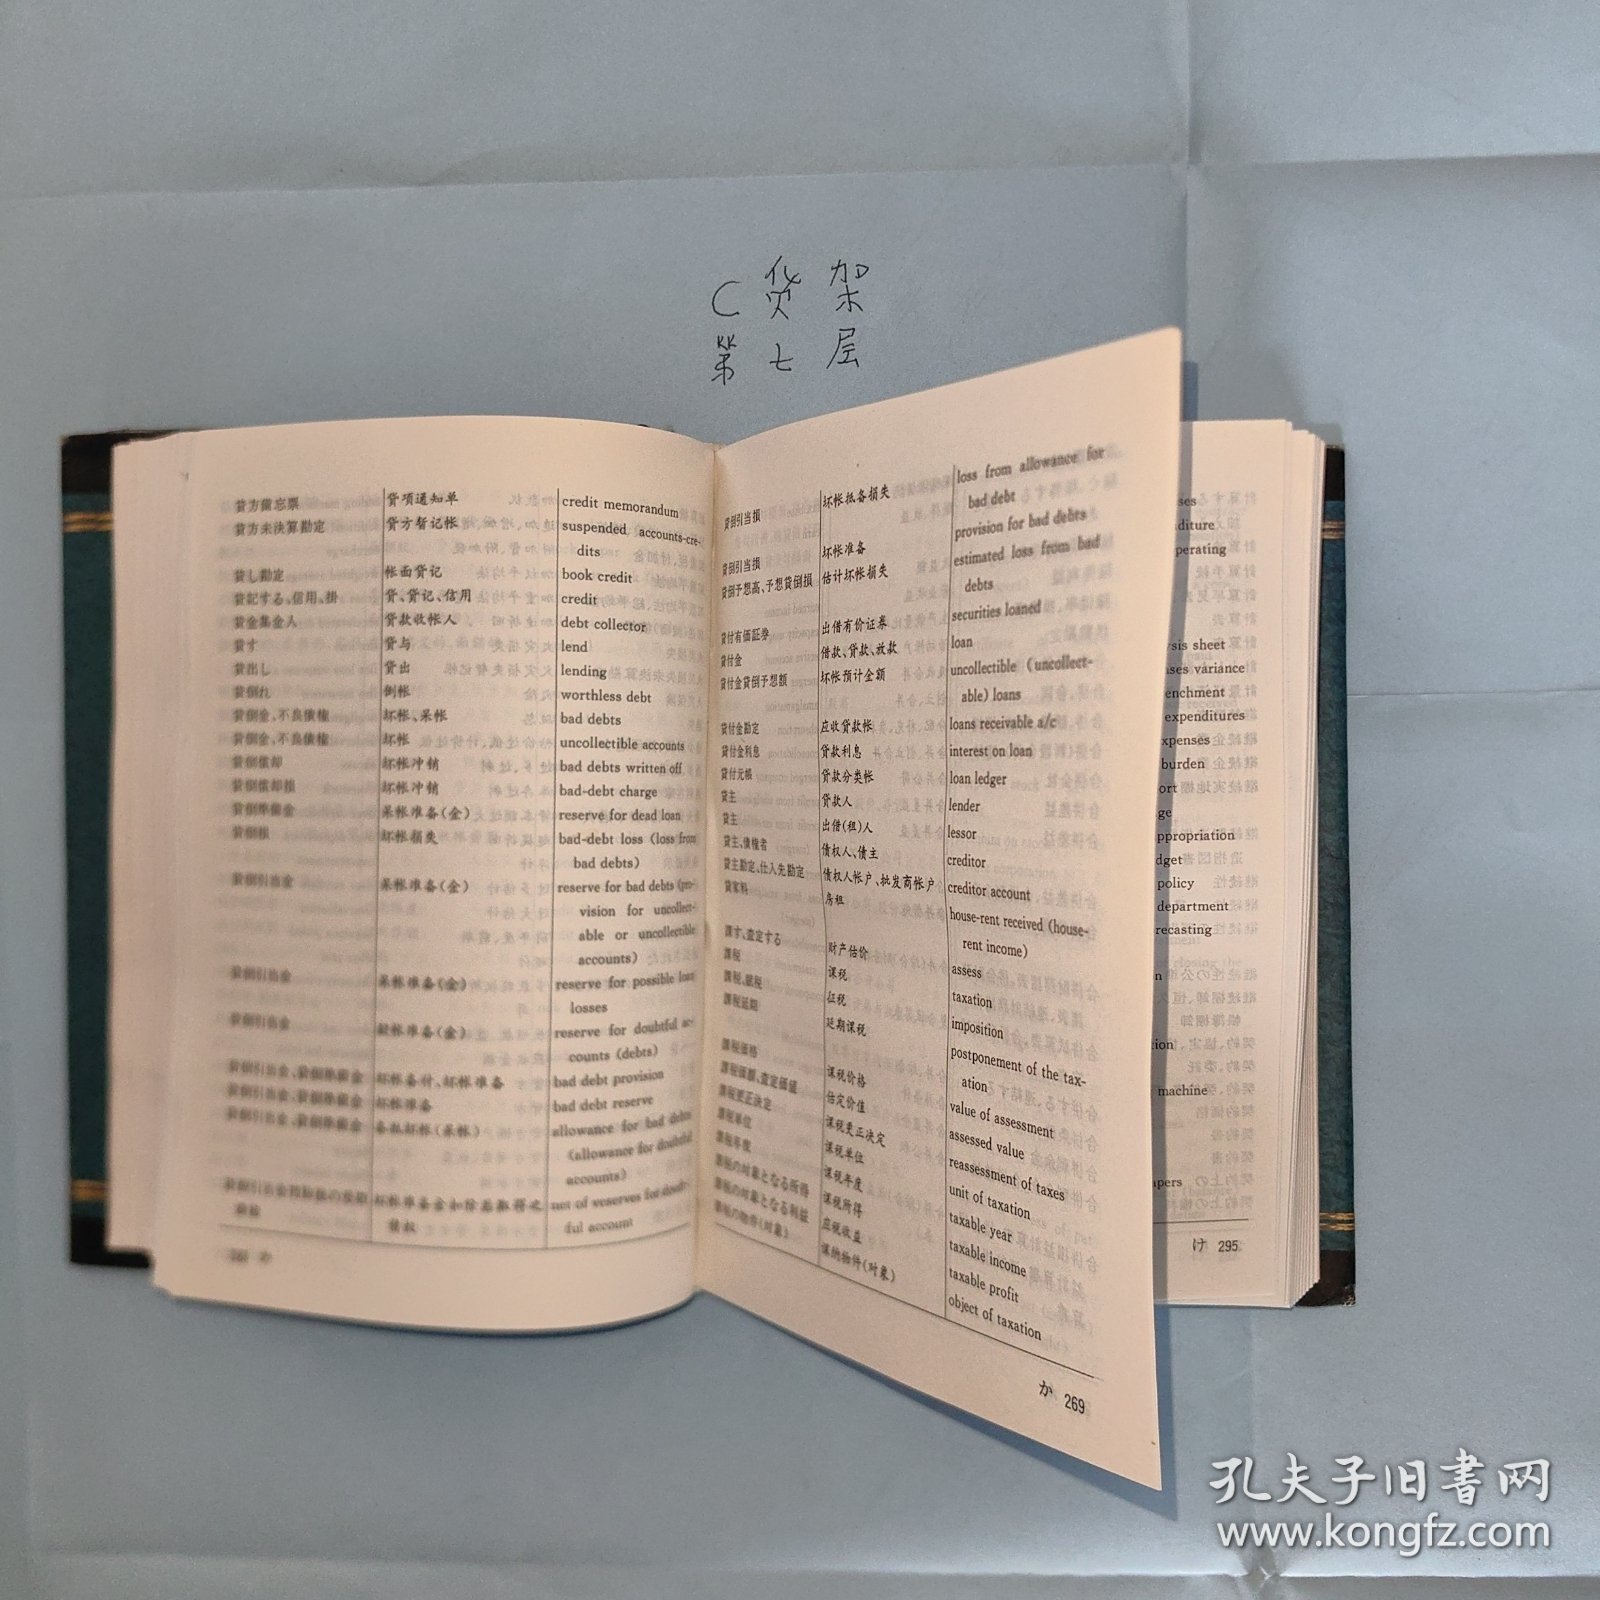 C货架
第七层
貸方備忘票 贷项通知单 credit memorandum
貸方未決算勘定 贷方暂记帐 suspended accounts-cre-
dits
貸し勘定 帐面贷记 book credit
貸記する、信用、掛 贷、贷记、信用 credit
貸金集金人 贷款收帐人 debt collector
貸す 贷与 lend
貸出し 贷出 lending
貸倒れ 倒帐 worthless debt
貸倒金、不良債権 坏帐、呆帐 bad debts
貸倒金、不良債権 坏帐 uncollectible accounts
貸倒償却 坏帐冲销 bad debts written off
貸倒償却損 坏帐冲销 bad-debt charge
貸倒準備金 呆帐准备(金) reserve for dead loan
貸倒損 坏帐损失 bad-debt loss (loss from
bad debts)
貸倒引当金 呆帐准备(金) reserve for bad debts (pro-
vision for uncollect-
able or uncollectible
accounts)
貸倒引当金 呆帐准备(金) reserve for possible loan
losses
貸倒引当金 呆帐准备(金) reserve for doubtful ac-
counts (debts)
貸倒引当金、貸倒準備金 坏帐备付、坏帐准备 bad debt provision
貸倒引当金、貸倒準備金 坏帐准备 bad debt reserve
貸倒引当金、貸倒準備金 备抵坏帐(呆帐) allowance for bad debts
(allowance for doubtful
accounts)
net of reserves for doubt-
ful account
か
貸倒引当損 坏帐抵备损失 loss from allowance for
bad debt
貸倒引当損 坏帐准备 provision for bad debts
貸倒予想高、予想貸倒損 估计坏帐损失 estimated loss from bad
debts
貸付有価証券 出借有价证券 securities loaned
貸付金 借款、贷款、放款 loan
貸付金貸倒予想額 坏帐预计金额 uncollectible (uncollect-
able) loans
貸付金勘定 应收贷款帐 loans receivable a/c
貸付金利息 贷款利息 interest on loan
貸付元帳 贷款分类帐 loan ledger
貸主 贷款人 lender
貸主 出借(租)人 lessor
貸主、債権者 债权人、债主 creditor
貸主勘定、仕入先勘定 债权人帐户、批发商帐户 creditor account
貸家料 房租 house-rent received (house-
rent income)
課す、査定する 财产估价 assess
課税 课税 taxation
課税、賦税 征税 imposition
課税延期 延期课税 postponement of the tax-
ation
課税価格 课税价格 value of assessment
課税価額、査定価値 估定价值 assessed value
課税更正決定 课税更正决定 reassessment of taxes
課税単位 课税单位 unit of taxation
課税年度 课税年度 taxable year
課税の対象となる所得 课税所得 taxable income
課税の対象となる利益 应税收益 taxable profit
課税の物件(対象) 课纳物件(对象) object of taxation
か 269
perating
sis sheet
ses variance
enchment
expenditures
xpenses
burden
ppropriation
dget
policy
department
recasting
machine
け 295
孔夫子旧书网
www.kongfz.com